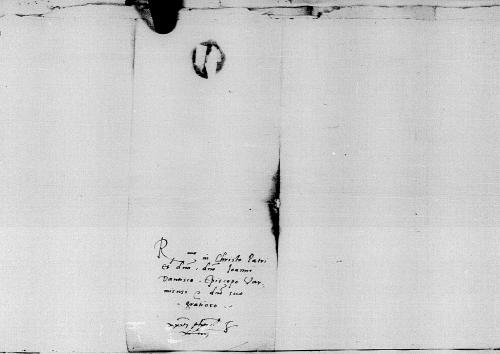 R mo in Christo Patri
Et dno, dno Joanni
Dantisco Episcopo Var
miensi dno suo
gratioso